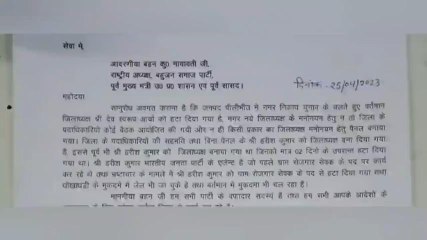 सेवा में,
आदरणीया बहन कु0 मायावती जी,
राष्ट्रीय अध्यक्ष, बहुजन समाज पार्टी,
पूर्व मुख्य मंत्री उ0 प्र0 शासन एवं पूर्व सांसद।
दिनांक- 25/04/2023
महोदया
सादर अवगत कराना है कि जनपद पीलीभीत में नगर निकाय चुनाव के चलते हुए वर्तमान
जिलाध्यक्ष श्री देव स्वरूप आर्या को हटा दिया गया है, मगर नये जिलाध्यक्ष के मनोनयन हेतु न तो जिला के
पदाधिकारियो कोई बैठक आयोजित की गयी और न ही किसी प्रकार का जिलाध्यक्ष मनोनयन हेतु पैनल बनाया
गया। जिला के पदाधिकारियों की सहमति तथा बिना पैनल के श्री हरीश कुमार को जिलाध्यक्ष बना दिया गया
है इससे पूर्व भी श्री हरीश कुमार को जिलाध्यक्ष बनाया गया था जिनको मात्र 02 दिनो के उपरान्त हटा दिया
गया था। श्री हरीश कुमार भारतीय जनता पार्टी के एजेन्ट है जो पहले ग्राम रोजगार सेवक के पद पर कार्य
कर रहे थे तथा भ्रष्टाचार के मामले में श्री हरीश कुमार को ग्राम रोजगार सेवक के पद से हटा दिया गया तथा
धोखाधड़ी के मुकदमे में जेल भी जा चुके है तथा वर्तमान में मुकदमा भी चल रहा है।
माननीया बहन जी हम सभी पार्टी के वफादार सदस्य है तथा हम सभी आपके आदेशों के